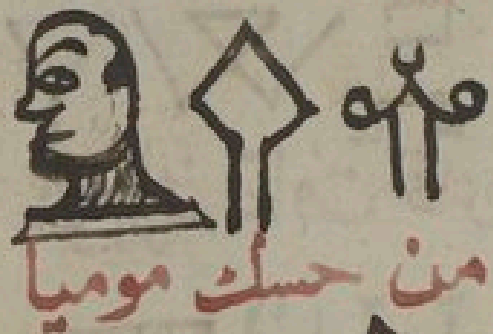 من حسك موميا